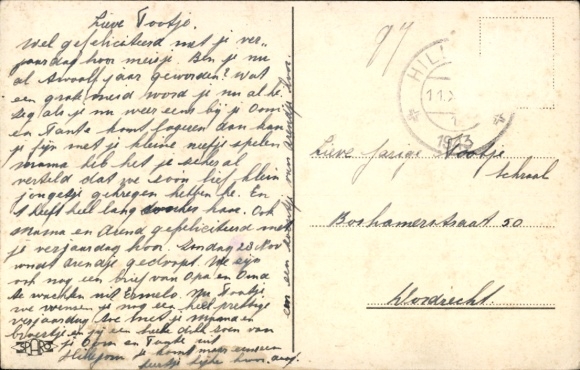 Lieve Tootje.
Wel gefeliciteerd met je ver-
jaardag hoor meisje. Ben je nu
al twaalf jaar geworden? Wat
een grote meid word je nu al hé.
Zeg als je nu weer eens bij je Oom
en Tante komt logeren dan kan
je fijn met je kleine neefje spelen
mama heb het je zeker al
verteld dat we zoon lief klein
jongetje gekregen hebben hé. En
heeft heel lang donker haar. Ook
Mama en Arend gefeliciteerd met
je verjaardag hoor. Zondag 28 Nov
wordt Arendje gedoopt. We zijn
ook nog een brief van Opa en Oma
te wachten uit Ermelo. Nu Tootje
we wensen je nog een heel prettige
verjaardag toe met je mama en
broertje en jij een hele dikke zoen van
je Oom en Tante uit
Hillegom. Je komt maar eens een
beertje kijke hoor.
van Arendje hoor.
97
HIL
11.X
1
1943
Lieve jarige Tootje
Schraal
Boshamerstraat 50
Dordrecht.
SPARO